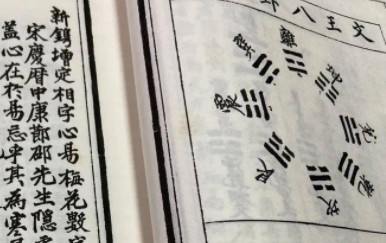 文王八
離
巽
震
艮
坎
新鐫增定相字心易梅花數
宋慶曆中康節邵先生隱
蓋心在於易忘乎其為寒